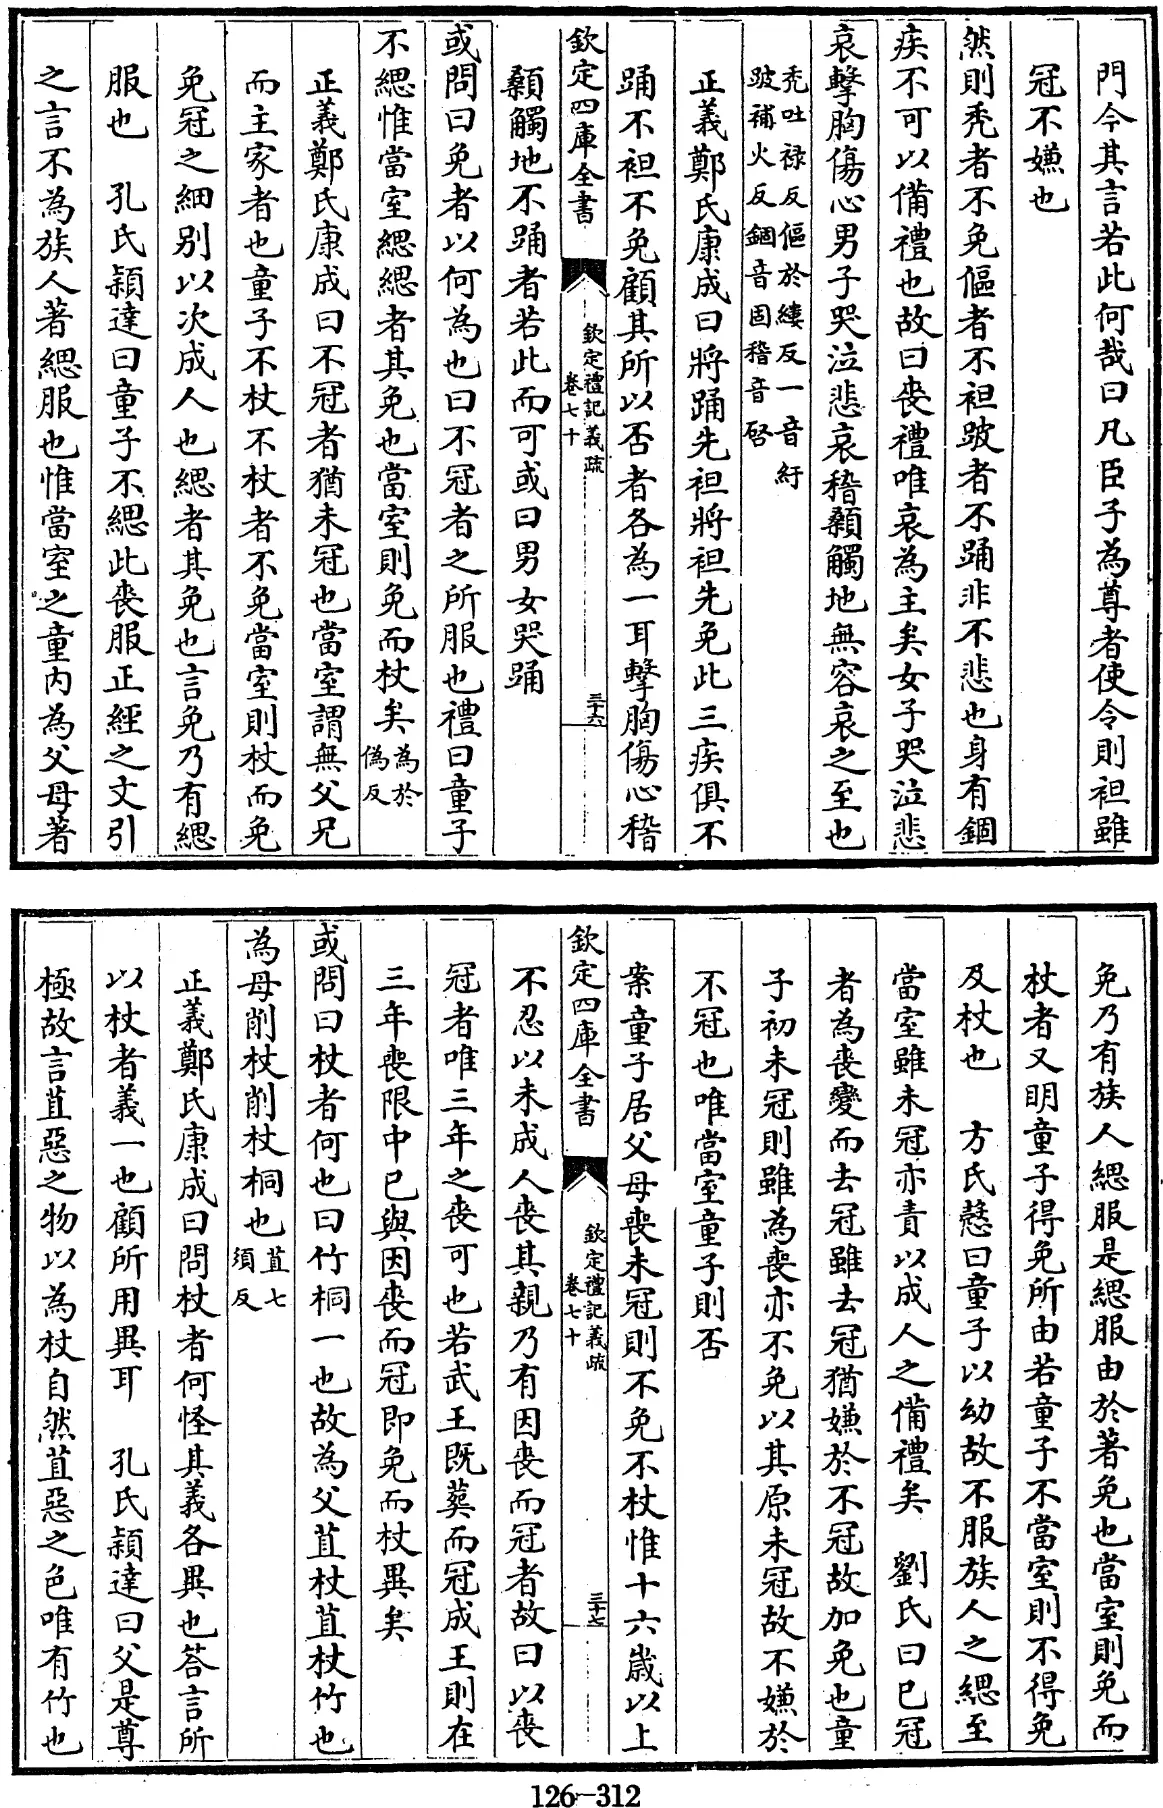 門今其言若此何哉曰凡臣子為尊者使令則袒雖
冠不嫌也
然則禿者不免傴者不袒跛者不踊非不悲也身有錮
疾不可以備禮也故曰喪禮唯哀為主矣女子哭泣悲
哀擊胸傷心男子哭泣悲哀稽顙觸地無容哀之至也
禿吐祿反傴於縷反一音紆
跛補火反錮音固稽音啓
正義鄭氏康成曰將踊先袒將袒先免此三疾俱不
踊不袒不免顧其所以否者各為一耳擊胸傷心稽
欽定四庫全書
欽定禮記義疏
卷七十
三十六
顙觸地不踊者若此而可或曰男女哭踊
或問曰免者以何為也曰不冠者之所服也禮曰童子
不緦惟當室緦緦者其免也當室則免而杖矣為於
偽反
正義鄭氏康成曰不冠者猶未冠也當室謂無父兄
而主家者也童子不杖不杖者不免當室則杖而免
免冠之細别以次成人也緦者其免也言免乃有緦
服也　孔氏穎達曰童子不緦此喪服正經之文引
之言不為族人著緦服也惟當室之童内為父母著
免乃有族人緦服是緦服由於著免也當室則免而
杖者又明童子得免所由若童子不當室則不得免
及杖也　方氏慤曰童子以幼故不服族人之緦至
當室雖未冠亦責以成人之備禮矣　劉氏曰已冠
者為喪變而去冠雖去冠猶嫌於不冠故加免也童
子初未冠則雖為喪亦不免以其原未冠故不嫌於
不冠也唯當室童子則否
案童子居父母喪未冠則不免不杖惟十六歲以上
欽定四庫全書
欽定禮記義疏
卷七十
三十七
不忍以未成人喪其親乃有因喪而冠者故曰以喪
冠者唯三年之喪可也若武王既葬而冠成王則在
三年喪限中已與因喪而冠即免而杖異矣
或問曰杖者何也曰竹桐一也故為父苴杖苴杖竹也
為母削杖削杖桐也苴七
須反
正義鄭氏康成曰問杖者何怪其義各異也答言所
以杖者義一也顧所用異耳　孔氏穎達曰父是尊
極故言苴惡之物以為杖自然苴惡之色唯有竹也
126-312